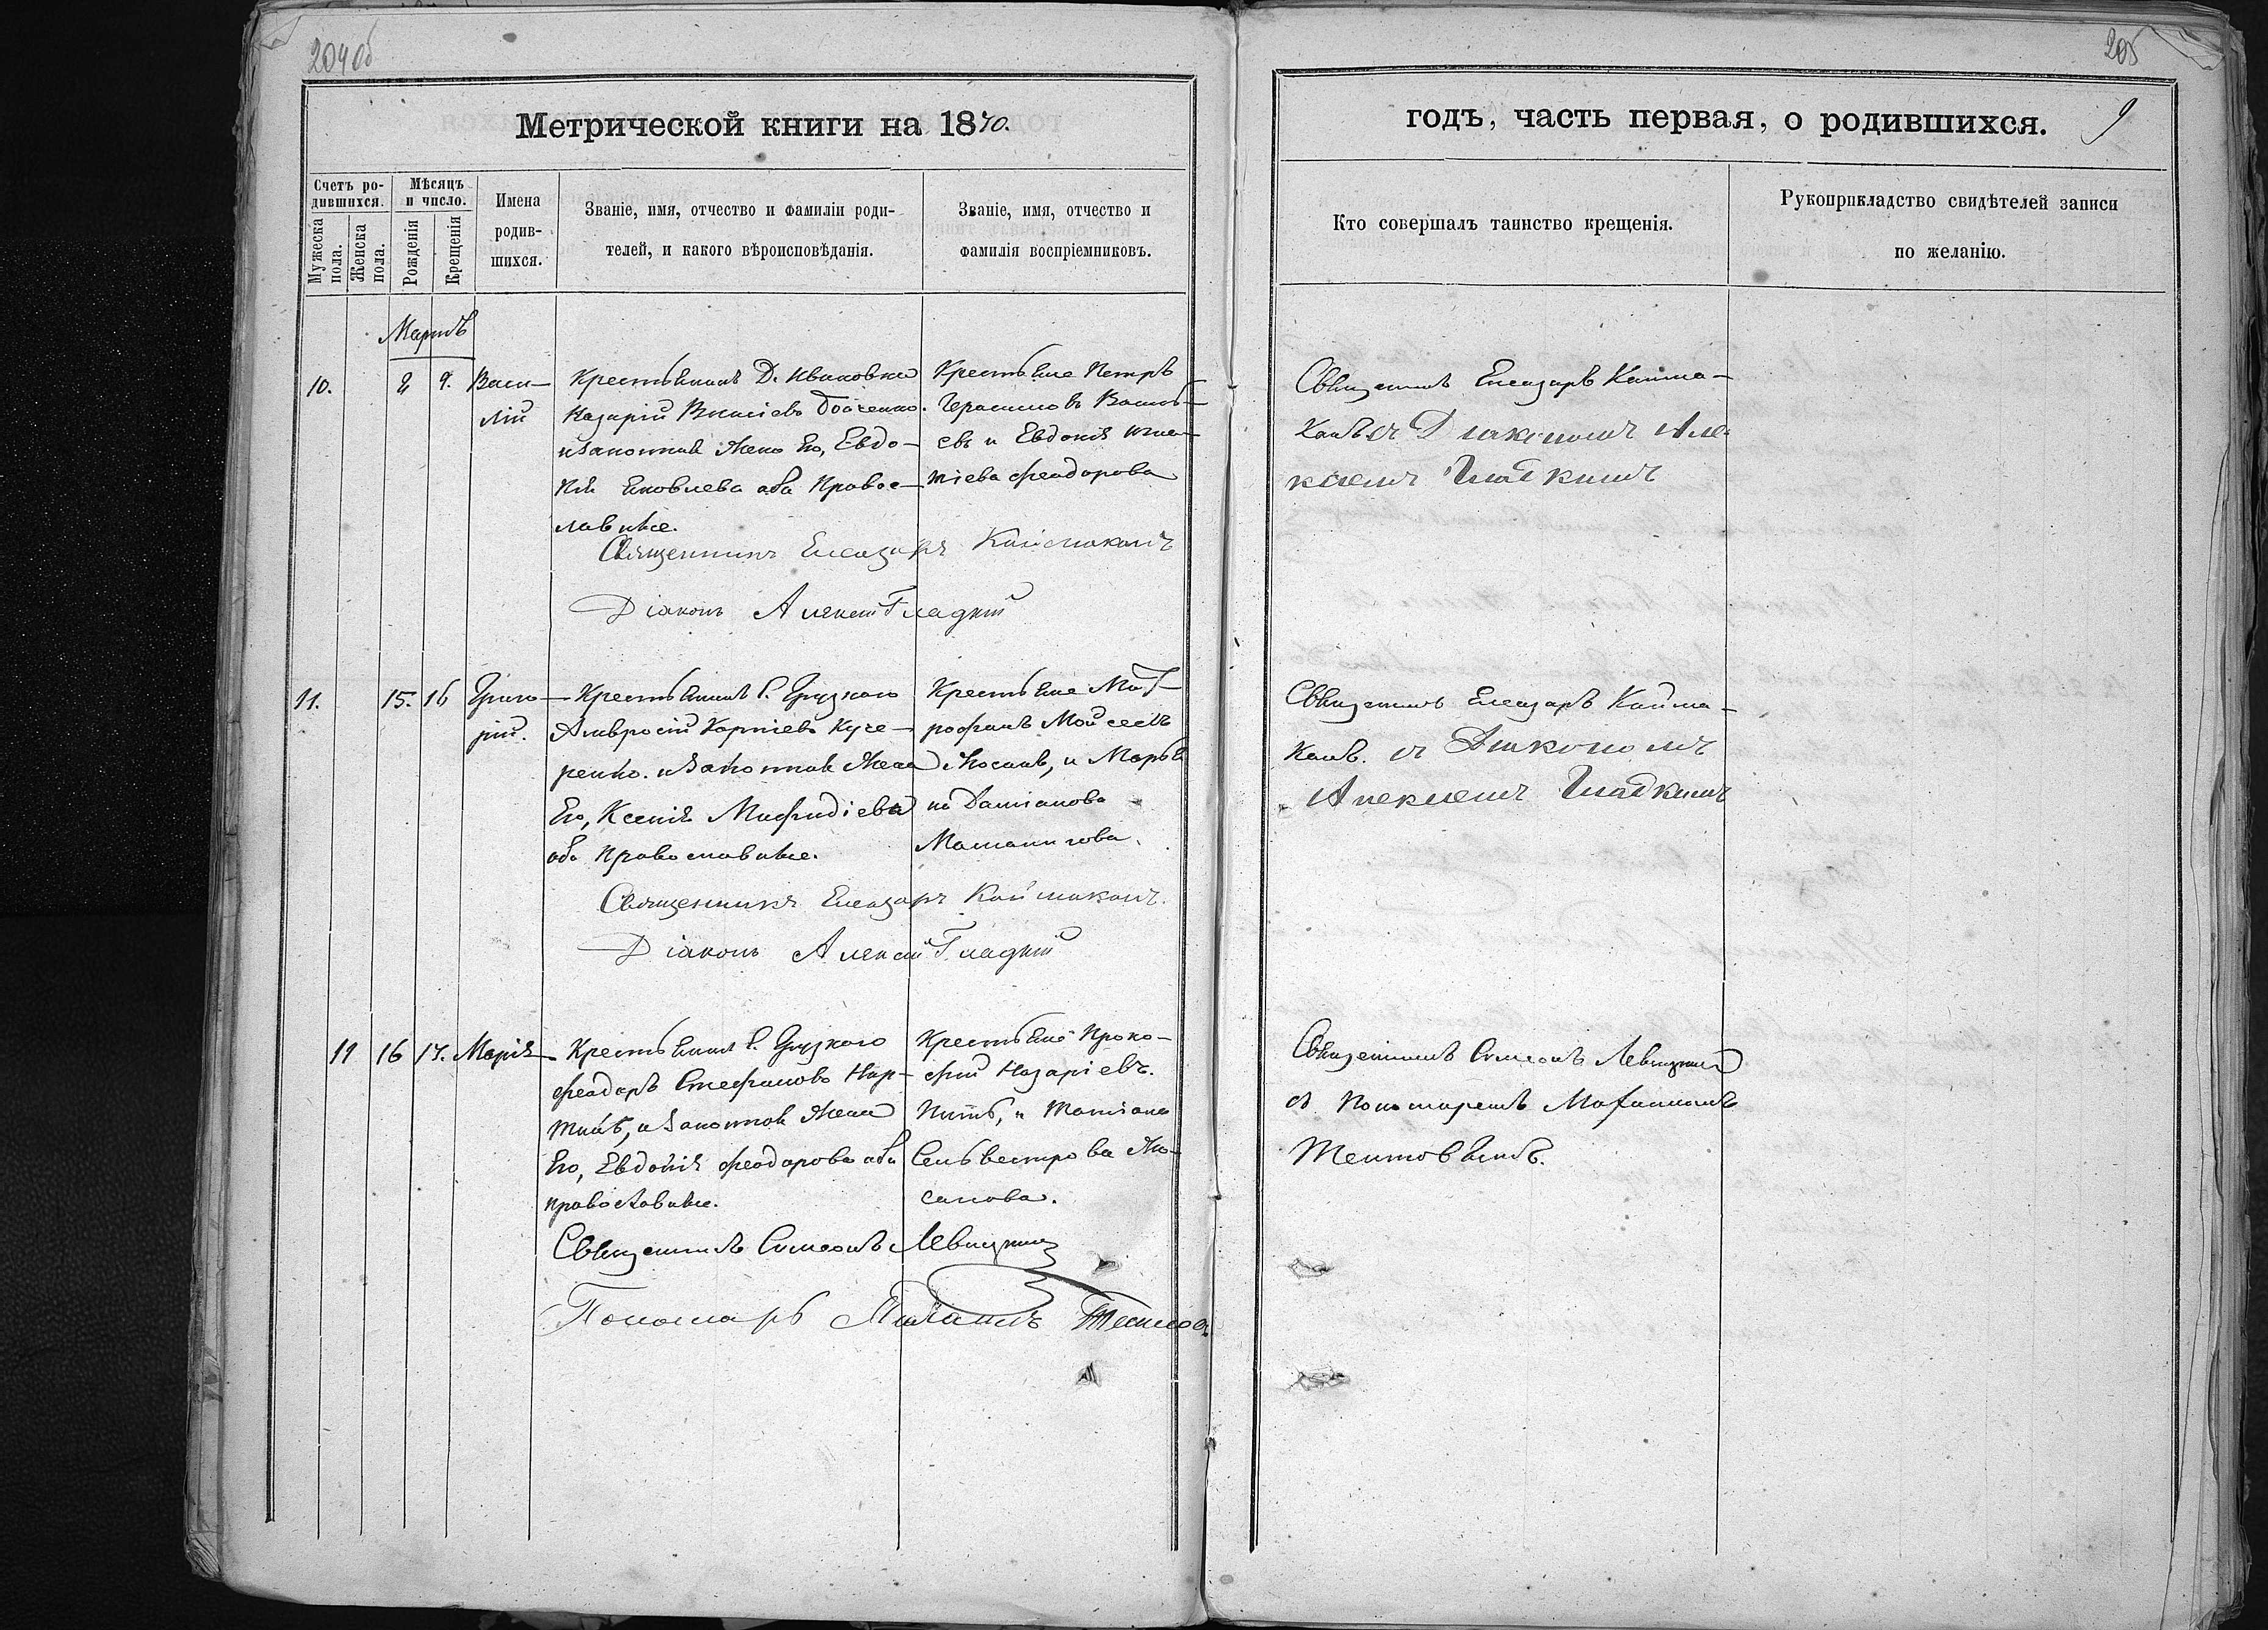 204об
205
Метрической книги на 1870.
годъ, часть первая, о родившихся.
9
Счетъ ро-
дившихся.
Мѣсяцъ
и число.
Мужеска
пола.
Женска
пола.
Рожденія
Крещенія
Имена
родив-
шихся.
Званіе, имя, отчество и фамиліи роди-
телей, и какого вѣроисповѣданія.
Званіе, имя, отчество и
фамилія воспріемниковъ.
Кто совершалъ таинство крещенія.
Рукоприкладство свидѣтелей записи
по желанію.
Мартъ
10.
9.
Васи-
лій
Крестьянинъ Д. Ивановки
Назарій Василіевъ Бойченко
и законная жена Его, Евдо-
кія Яковлева оба Правос-
лавные.
Священникъ Елеазаръ Каймаканъ
Діаконъ Алексій Гладкій
Крестьяне Петръ
Герасимовъ Василь-
евъ и Евдокія Игна-
тіева Феодорова
Священникъ Елеазаръ Кайма-
канъ съ Діакономъ Але-
ксіемъ Гладкимъ
11.
15.
16
Григо-
рій.
Крестьянинъ С. Грузкого
Амвросій Карпіевъ Куче-
ренко. и законная жена
Его, Ксенія Мефодіева
оба Православные.
Священникъ Елеазаръ Каймаканъ.
Діаконъ Алексій Гладкій
Крестьяне Мит-
рофанъ Мойсеевъ
Носанъ, и Марья
на Даміанова
Священникъ Елеазаръ Кайма-
канъ. съ Діакономъ
Алексіемъ Гладкимъ
11
16
17.
Марія
Крестьянинъ С. Грузкого
Феодоръ Стефановъ
и законная жена
Его, Евдокія Феодорова оба
православные.
Священникъ Симеонъ Левицкій
Пономарь
Крестьяне Проко-
фій Назаріевъ.
и Татіана
Сельвестрова
санова.
Священникъ Симеонъ Левицкій
съ Пономаремъ